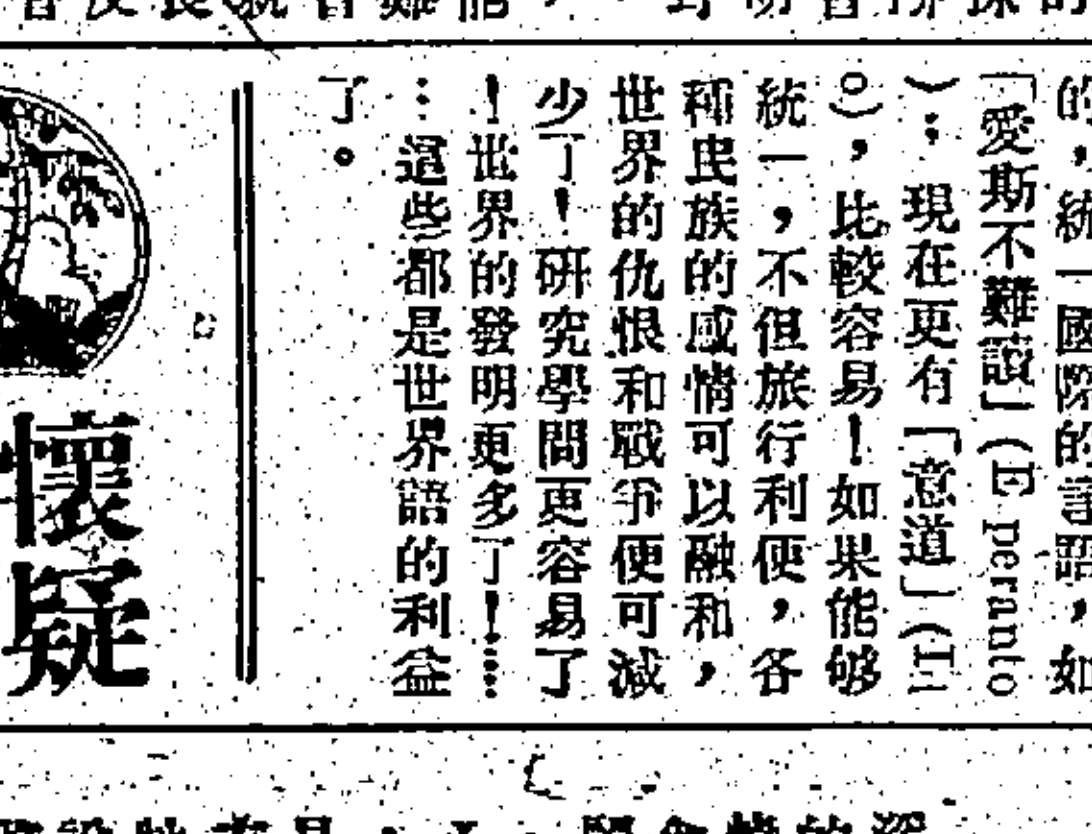 的，統一國際的言語，如
「愛斯不難讀」（E peranto
）：現在更有「意道」（I
o），比較容易！如果能够
統一，不但旅行利便，各
種民族的感情可以融和，
世界的仇恨和戰爭便可減
少了！研究學問更容易了
！世界的發明更多了！…
…這些都是世界語的利益
了。
懷疑